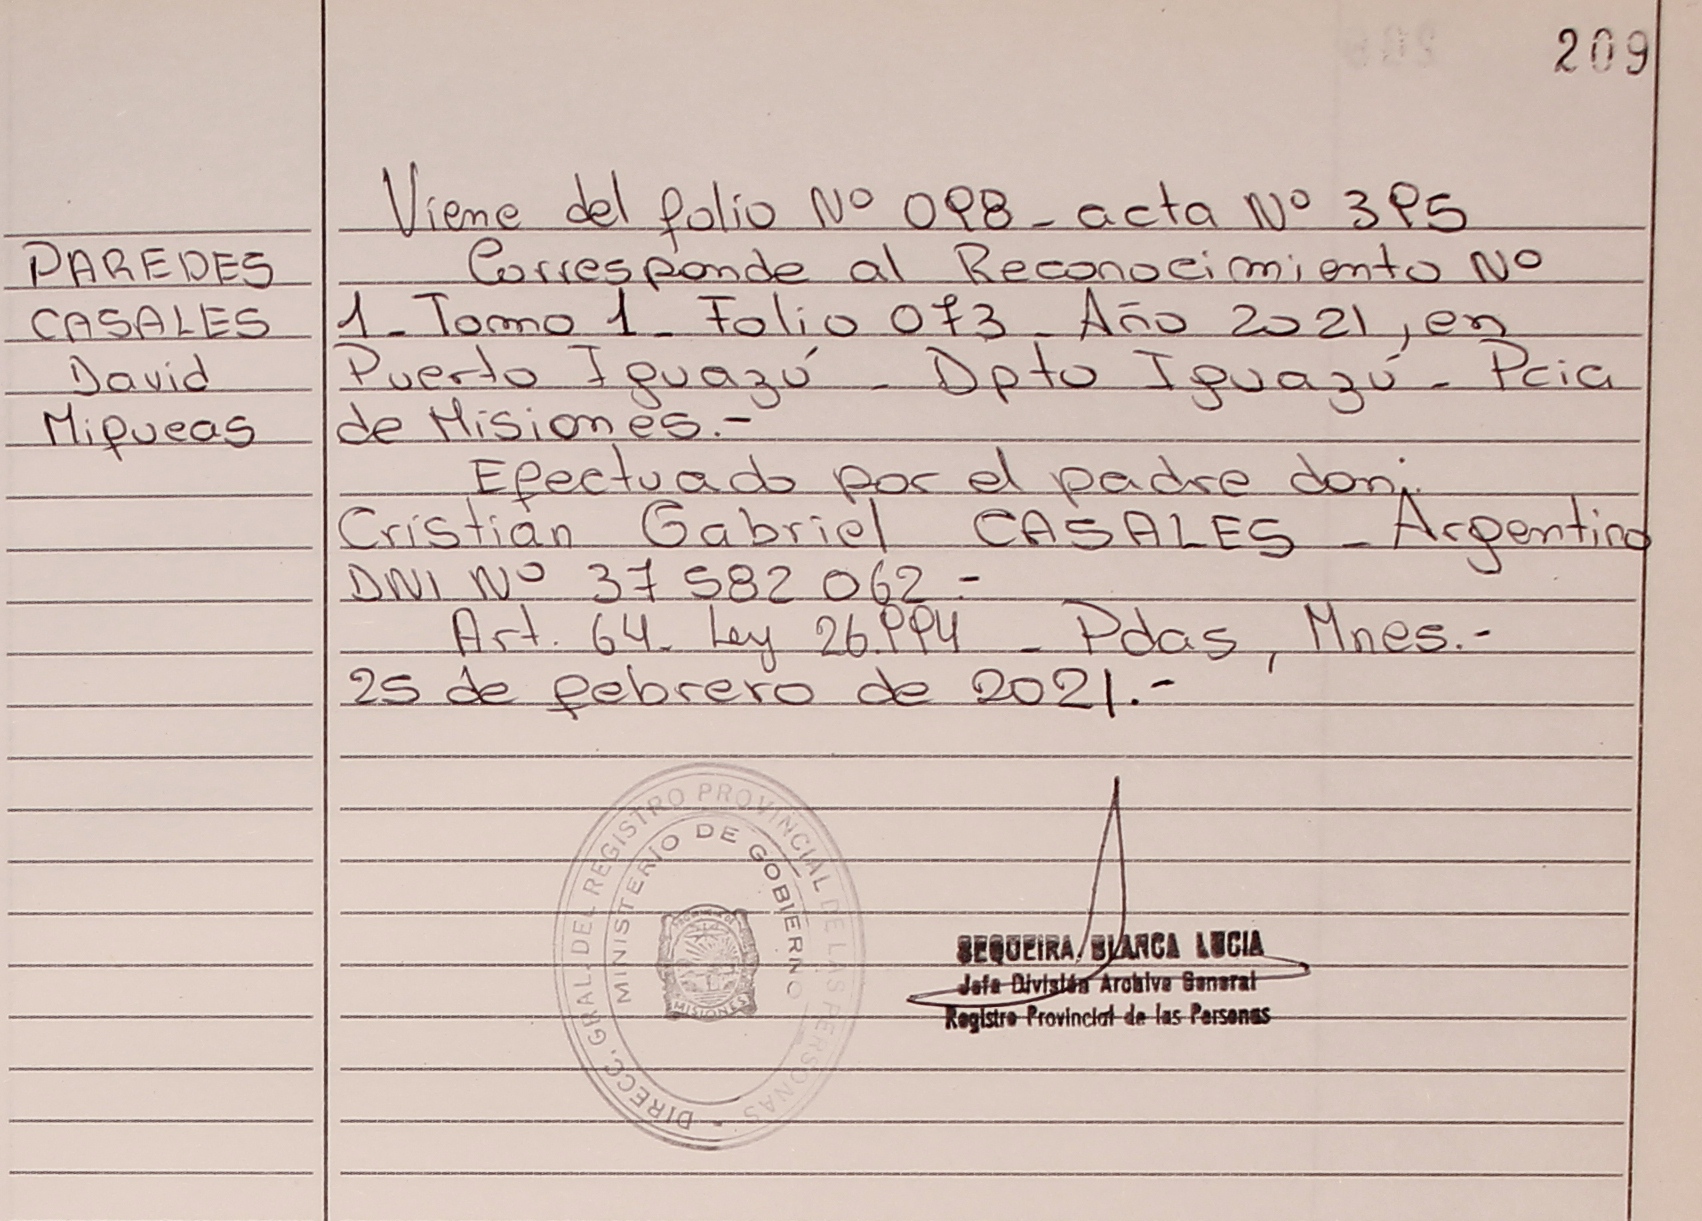 209
Viene del folio Nº 098 - acta Nº 395
PAREDES
CASALES
David
Miqueas
Corresponde al Reconocimiento Nº
1 - Tomo 1 - Folio 073 - Año 2021, en
Puerto Iguazú - Dpto Iguazú - Pcia
de Misiones.-
Efectuado por el padre don:
Cristian Gabriel CASALES - Argentino
DNI Nº 37 582 062 -
Art. 64 - Ley 26.994 - Pdas, Mnes.-
25 de febrero de 2021.-
DIRECC. GRAL. DEL REGISTRO PROVINCIAL DE LAS PERSONAS
MINISTERIO DE GOBIERNO
MISIONES
SEQUEIRA, BLANCA LUCIA
Jefe División Archivo General
Registro Provincial de las Personas